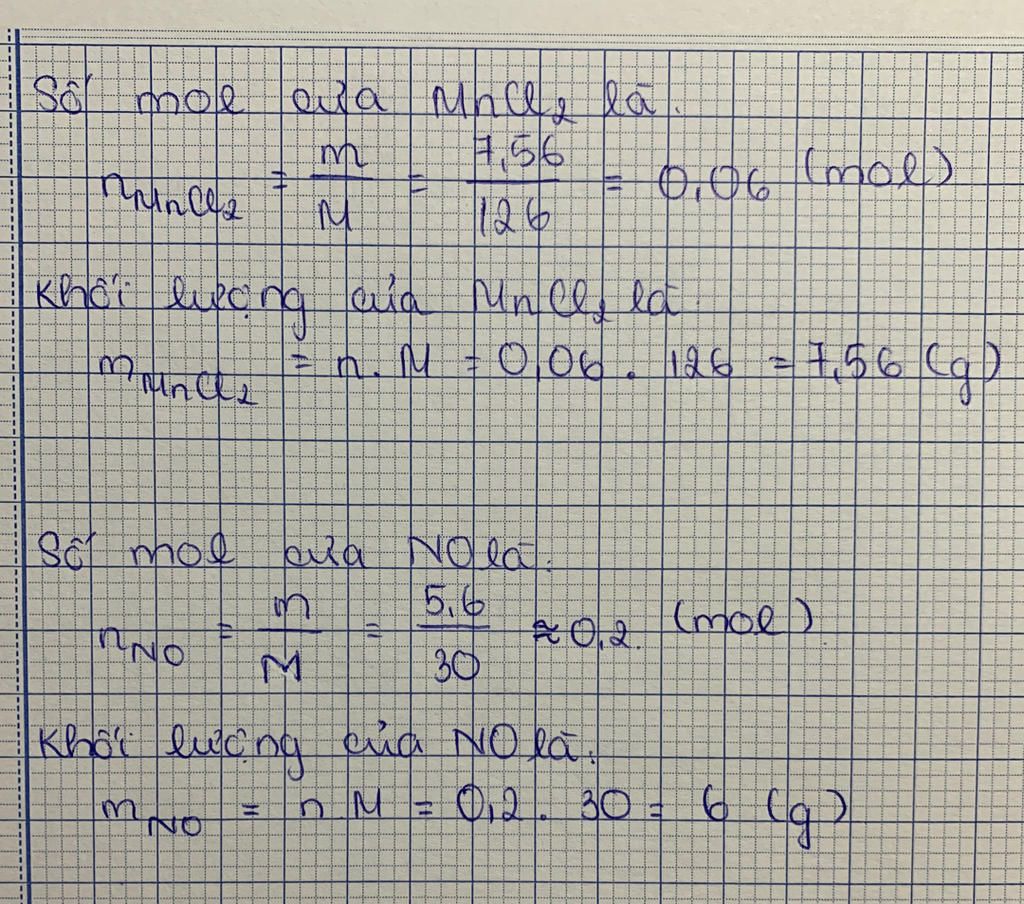 Số mol của MnCl₂ là.
n MnCl₂ = m/M = 7,56/126 = 0,06 (mol)
Khối lượng của MnCl₂ là
m MnCl₂ = n.M = 0,06 . 126 = 7,56 (g)
Số mol của NO là.
n NO = m/M = 5,6/30 ≈ 0,2. (mol).
Khối lượng của NO là.
m NO = n.M = 0,2 . 30 = 6 (g)